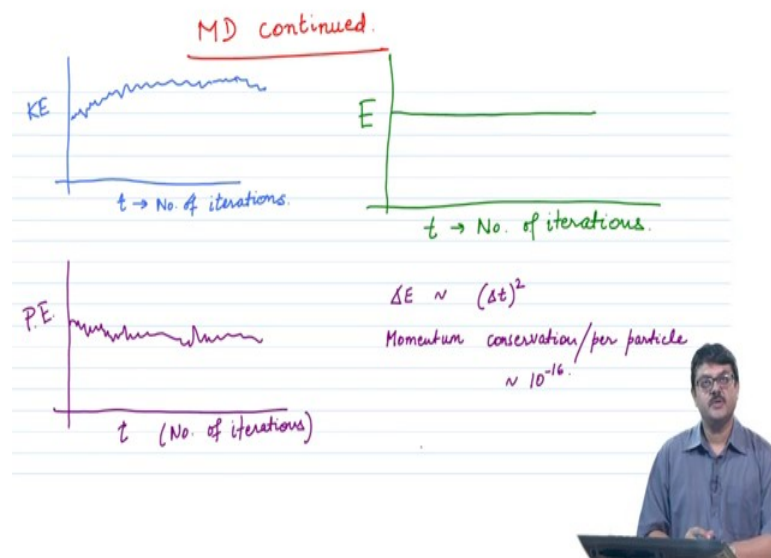 MD continued.
KE
t → No. of iterations.
E
t → No. of iterations.
P.E.
t (No. of iterations)
ΔE ~ (Δt)²
Momentum conservation/per particle
~ 10⁻¹⁶.